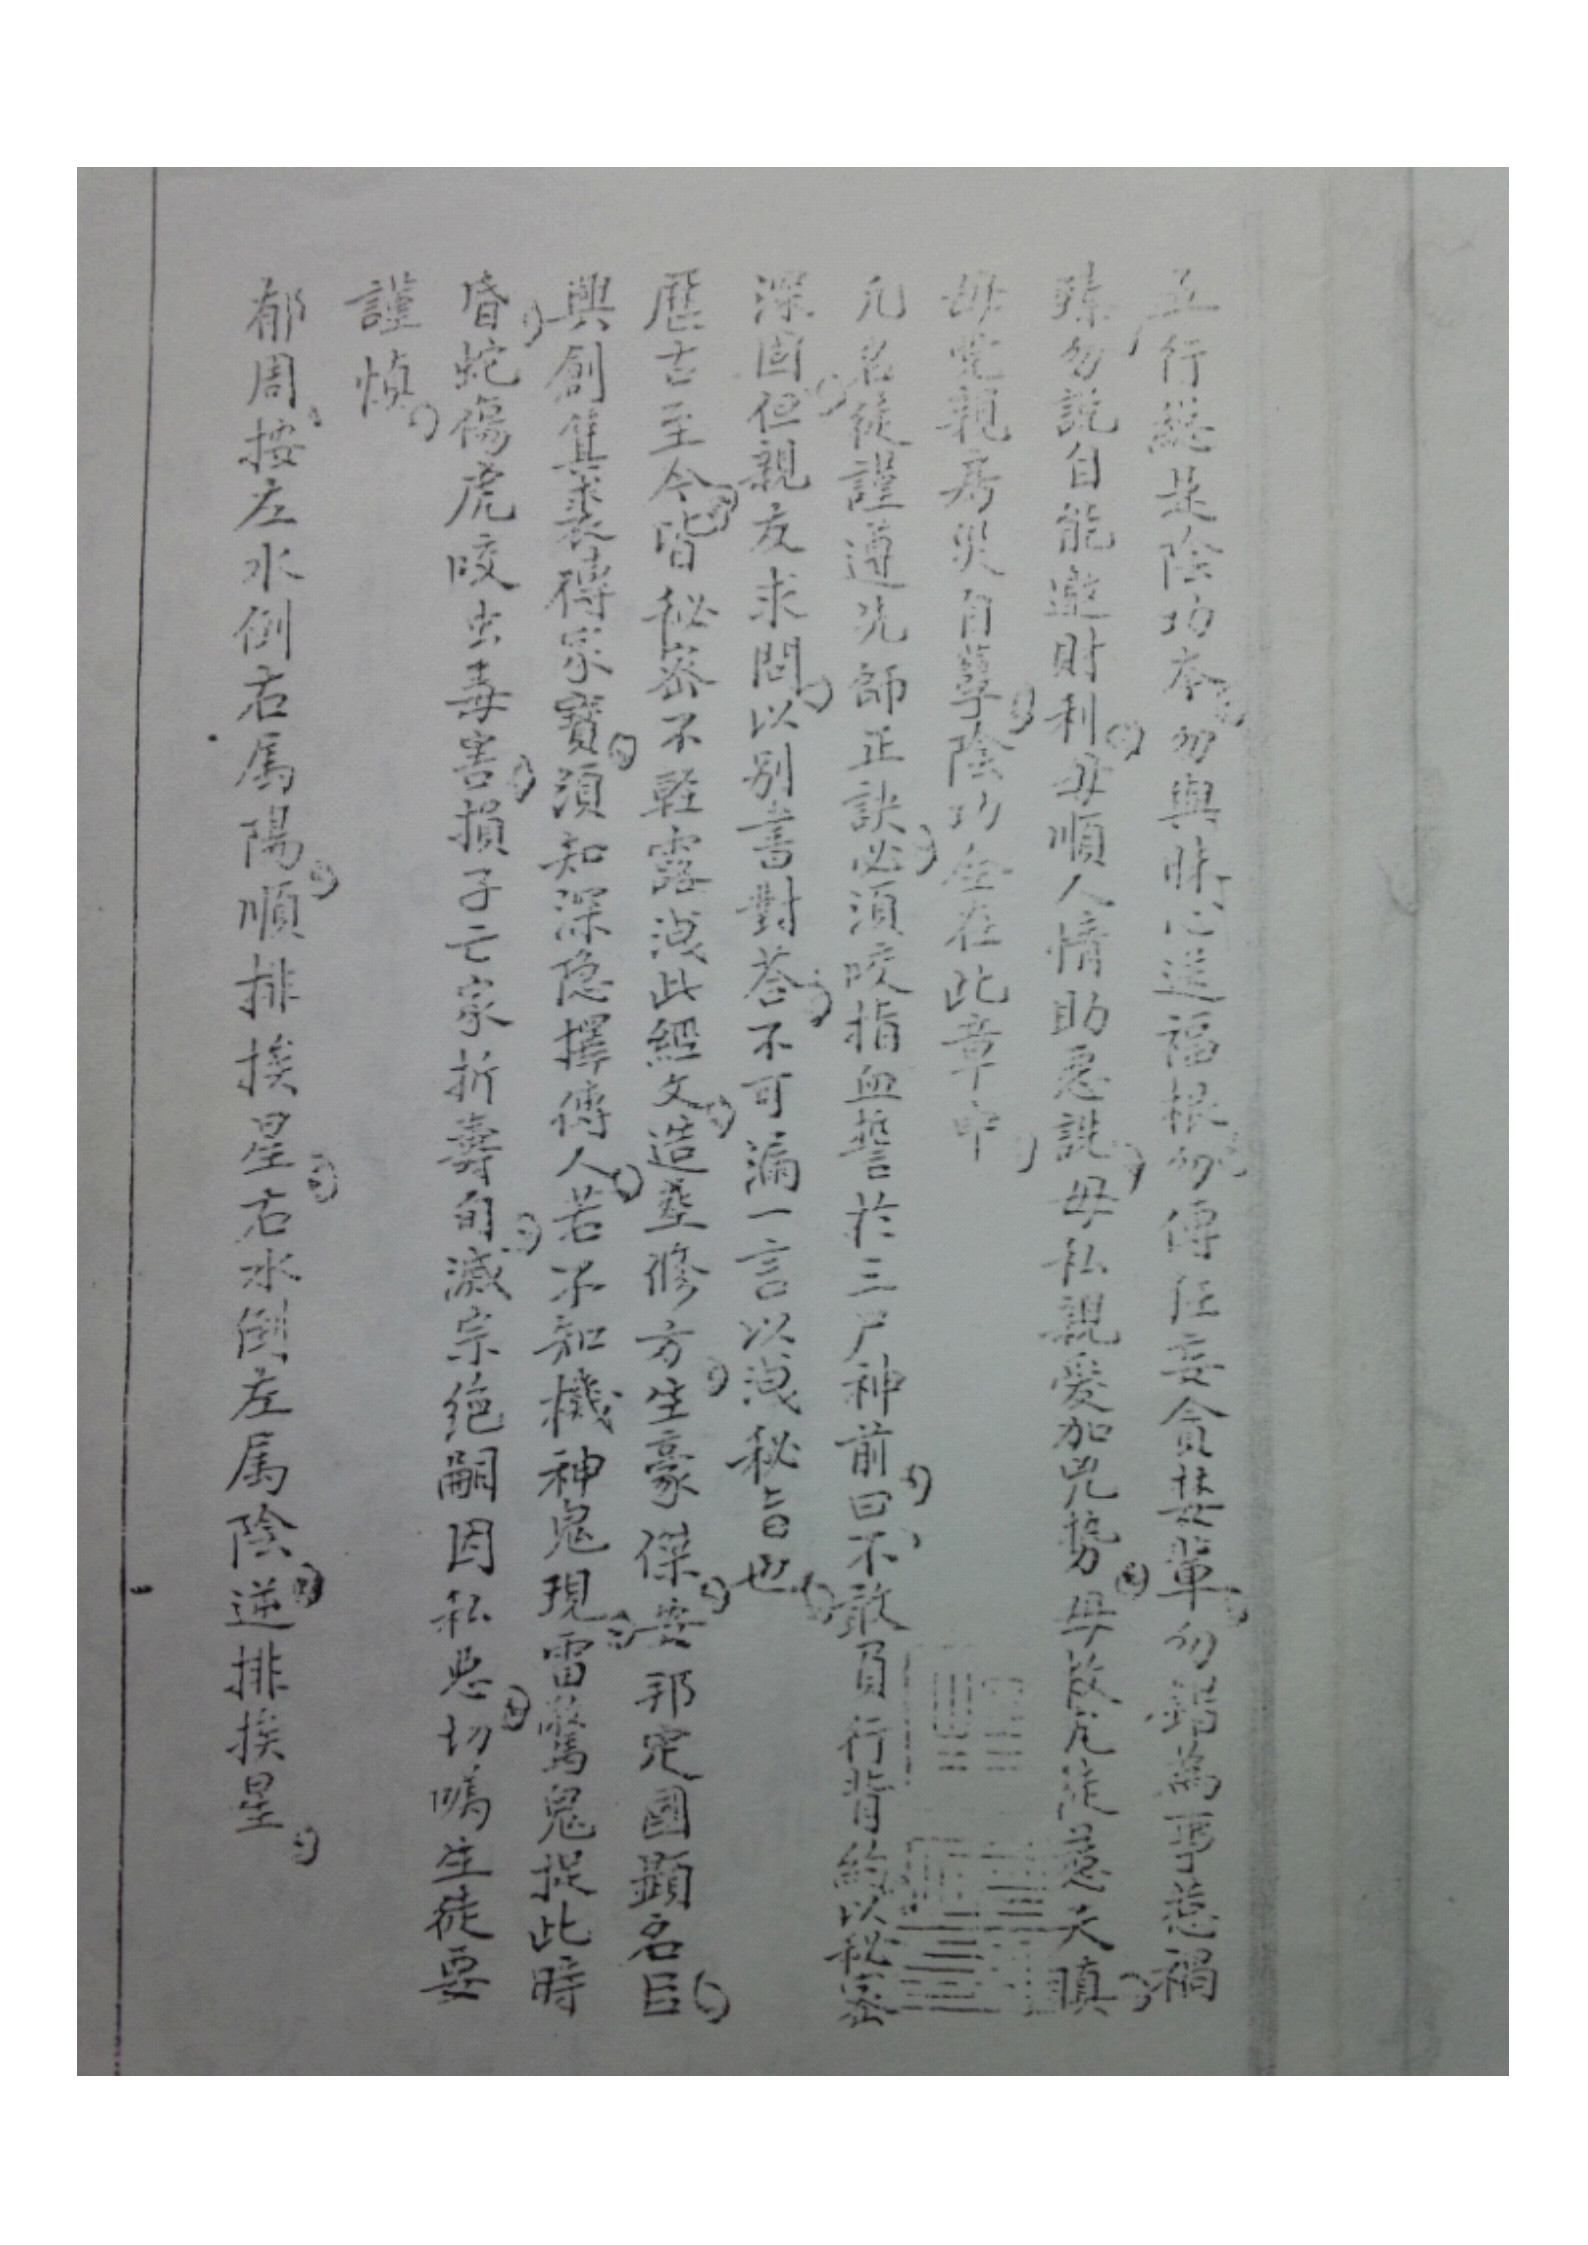 五行總是陰功本勿與昧心送福根勿傳任妄貪婪輩勿錯為事惹禍
殊勿說自能邀財利毋順人情助惡說毋私親愛加兇勢毋故允從惹天瞋
毋黨親房災自孽陰功全在此章中
凡名徒謹遵先師正訣必須咬指血誓於三尸神前曰不敢負行背約以秘密
深固但親友求問以別書對荅不可漏一言以洩秘旨也
歷古至今皆秘密不輕露洩此經文造塟修方生豪傑安邦定國顯名臣
興創箕裘得家寶須知深隐擇傳人若不知機神鬼現雷驚鬼捉此時
昏蛇傷虎咬虫毒害損子亡家折壽旬滅宗絕嗣因私忌切嘱生徒要
謹慎
郁周按左水倒右属陽順排挨星右水倒左属陰逆排挨星